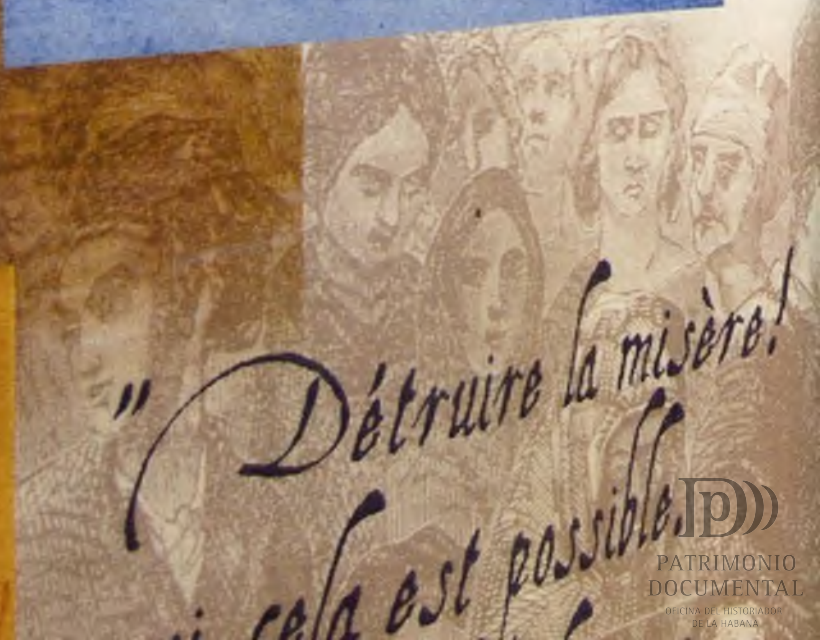 " Détruire la misère!
cela est possible.
PATRIMONIO
DOCUMENTAL
OFICINA DEL HISTORIADOR
DE LA HABANA